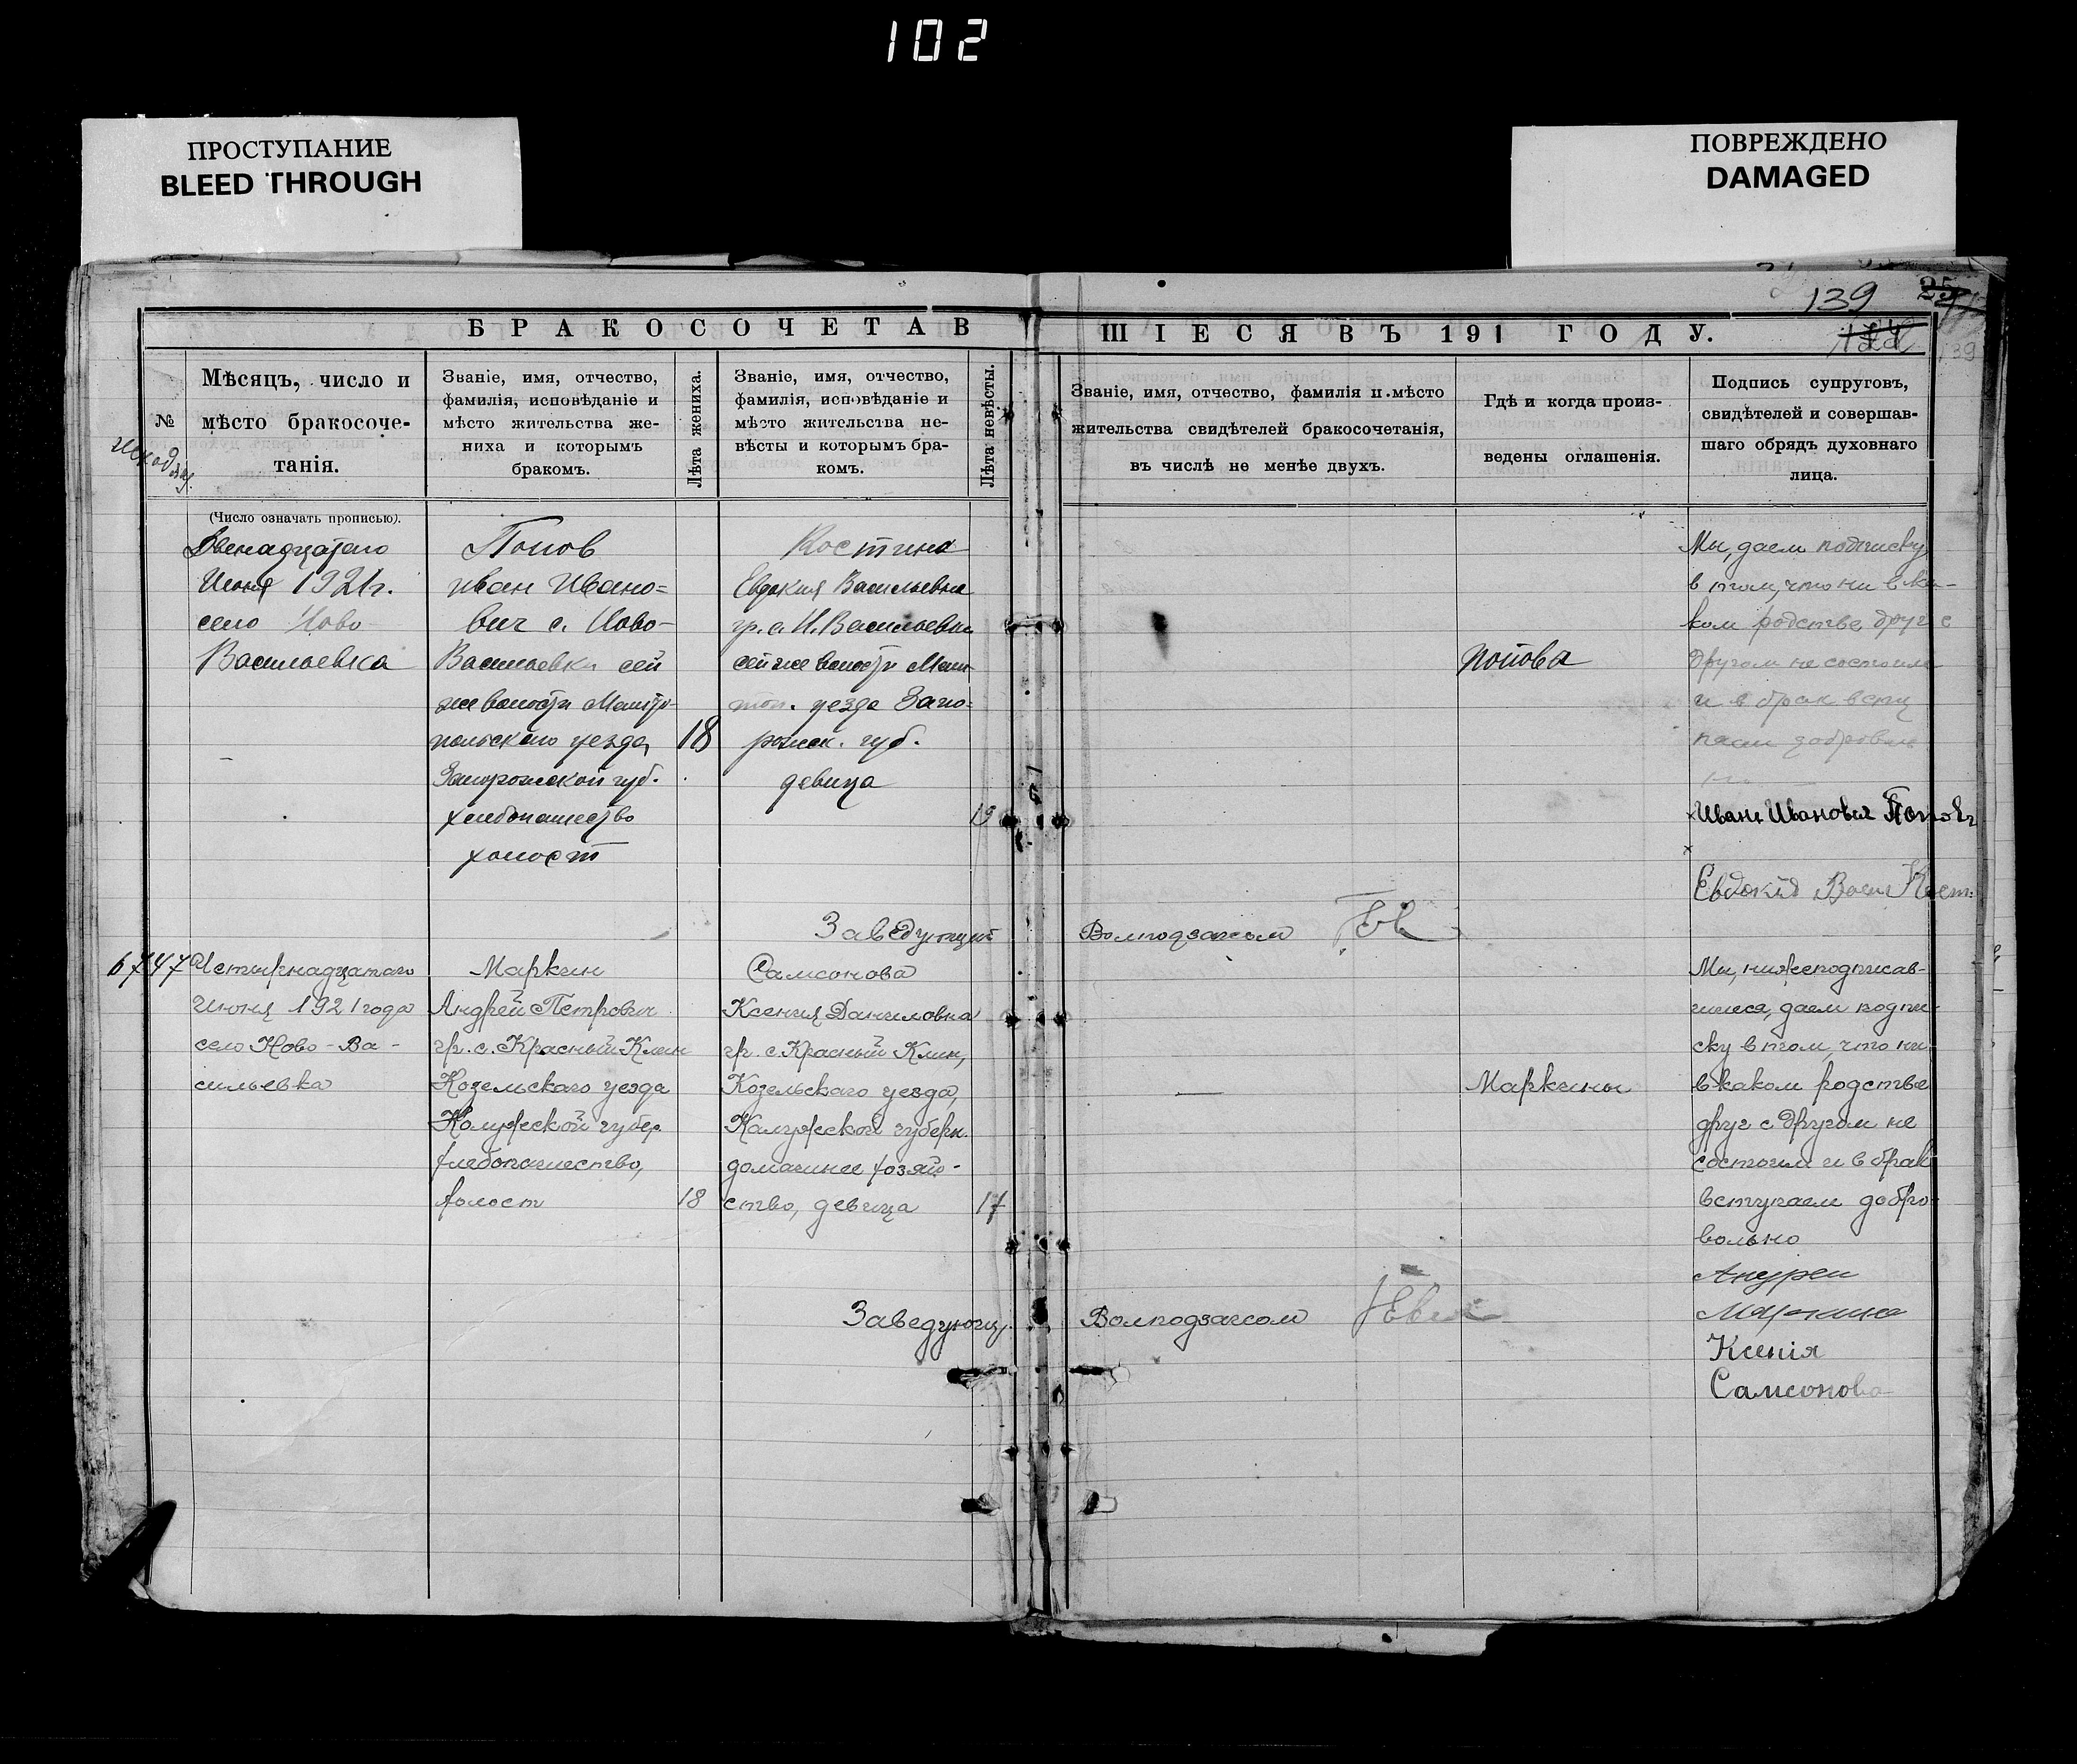 102
ПРОСТУПАНИЕ
BLEED THROUGH
ПОВРЕЖДЕНО
DAMAGED
139
БРАКОСОЧЕТАВ
ШІЕСЯ ВЪ 191 ГОДУ.
№
Мѣсяцъ, число и
мѣсто бракосоче-
танія.
Званіе, имя, отчество,
фамилія, исповѣданіе и
мѣсто жительства же-
ниха и которымъ
бракомъ.
Лѣта жениха.
Званіе, имя, отчество,
фамилія, исповѣданіе и
мѣсто жительства не-
вѣсты и которымъ бра-
комъ.
Лѣта невѣсты.
Званіе, имя, отчество, фамилія и мѣсто
жительства свидѣтелей бракосочетанія,
въ числѣ не менѣе двухъ.
Гдѣ и когда произ-
ведены оглашенія.
Подпись супруговъ,
свидѣтелей и совершав-
шаго обрядъ духовнаго
лица.
(Число означать прописью).
Двенадцатого
Июня 1921г.
село Ново
Васильевка
Попов
Иван Ивано=
вич с. Ново-
Васильевки сей
же волости Мелито-
польского уезда,
Запорожской губ.
хлебопашество
холост
18
Костина
Евдокия Васильевна
гр. с. Н. Васильевки
сей же волости Мели-
топ. уезда Запо=
рожск. губ.
девица
19
Попова
Мы, даем подписку
в том, что ни в ка-
ком родстве друг с
другом не состоим
и в брак всту
паем добровль
но
Иван Иванович Попов
Евдокія Васил Кост.
Заведующий
Волподзагсом
6747
Четырнадцатаго
Июня 1921 года
село Ново-Ва-
сильевка
Маркин
Андрей Петрович
гр. с. Красный Клин
Козельскаго уезда
Калужской губер.
хлебопашество,
холост
18
Самсонова
Ксения Даниловна
гр. с. Красный Клин,
Козельскаго уезда,
Калужской губерн.
домашнее хозяй-
ство, девица
17
Маркины
Мы, нижеподписав-
шиеся, даем подпи-
ску в том, что ни
в каком родстве
друг с другом не
состоим и в брак
вступаем добро-
вольно
Андреи
Маркина
Ксенія
Самсонова
Заведующ.
Волподзагсом